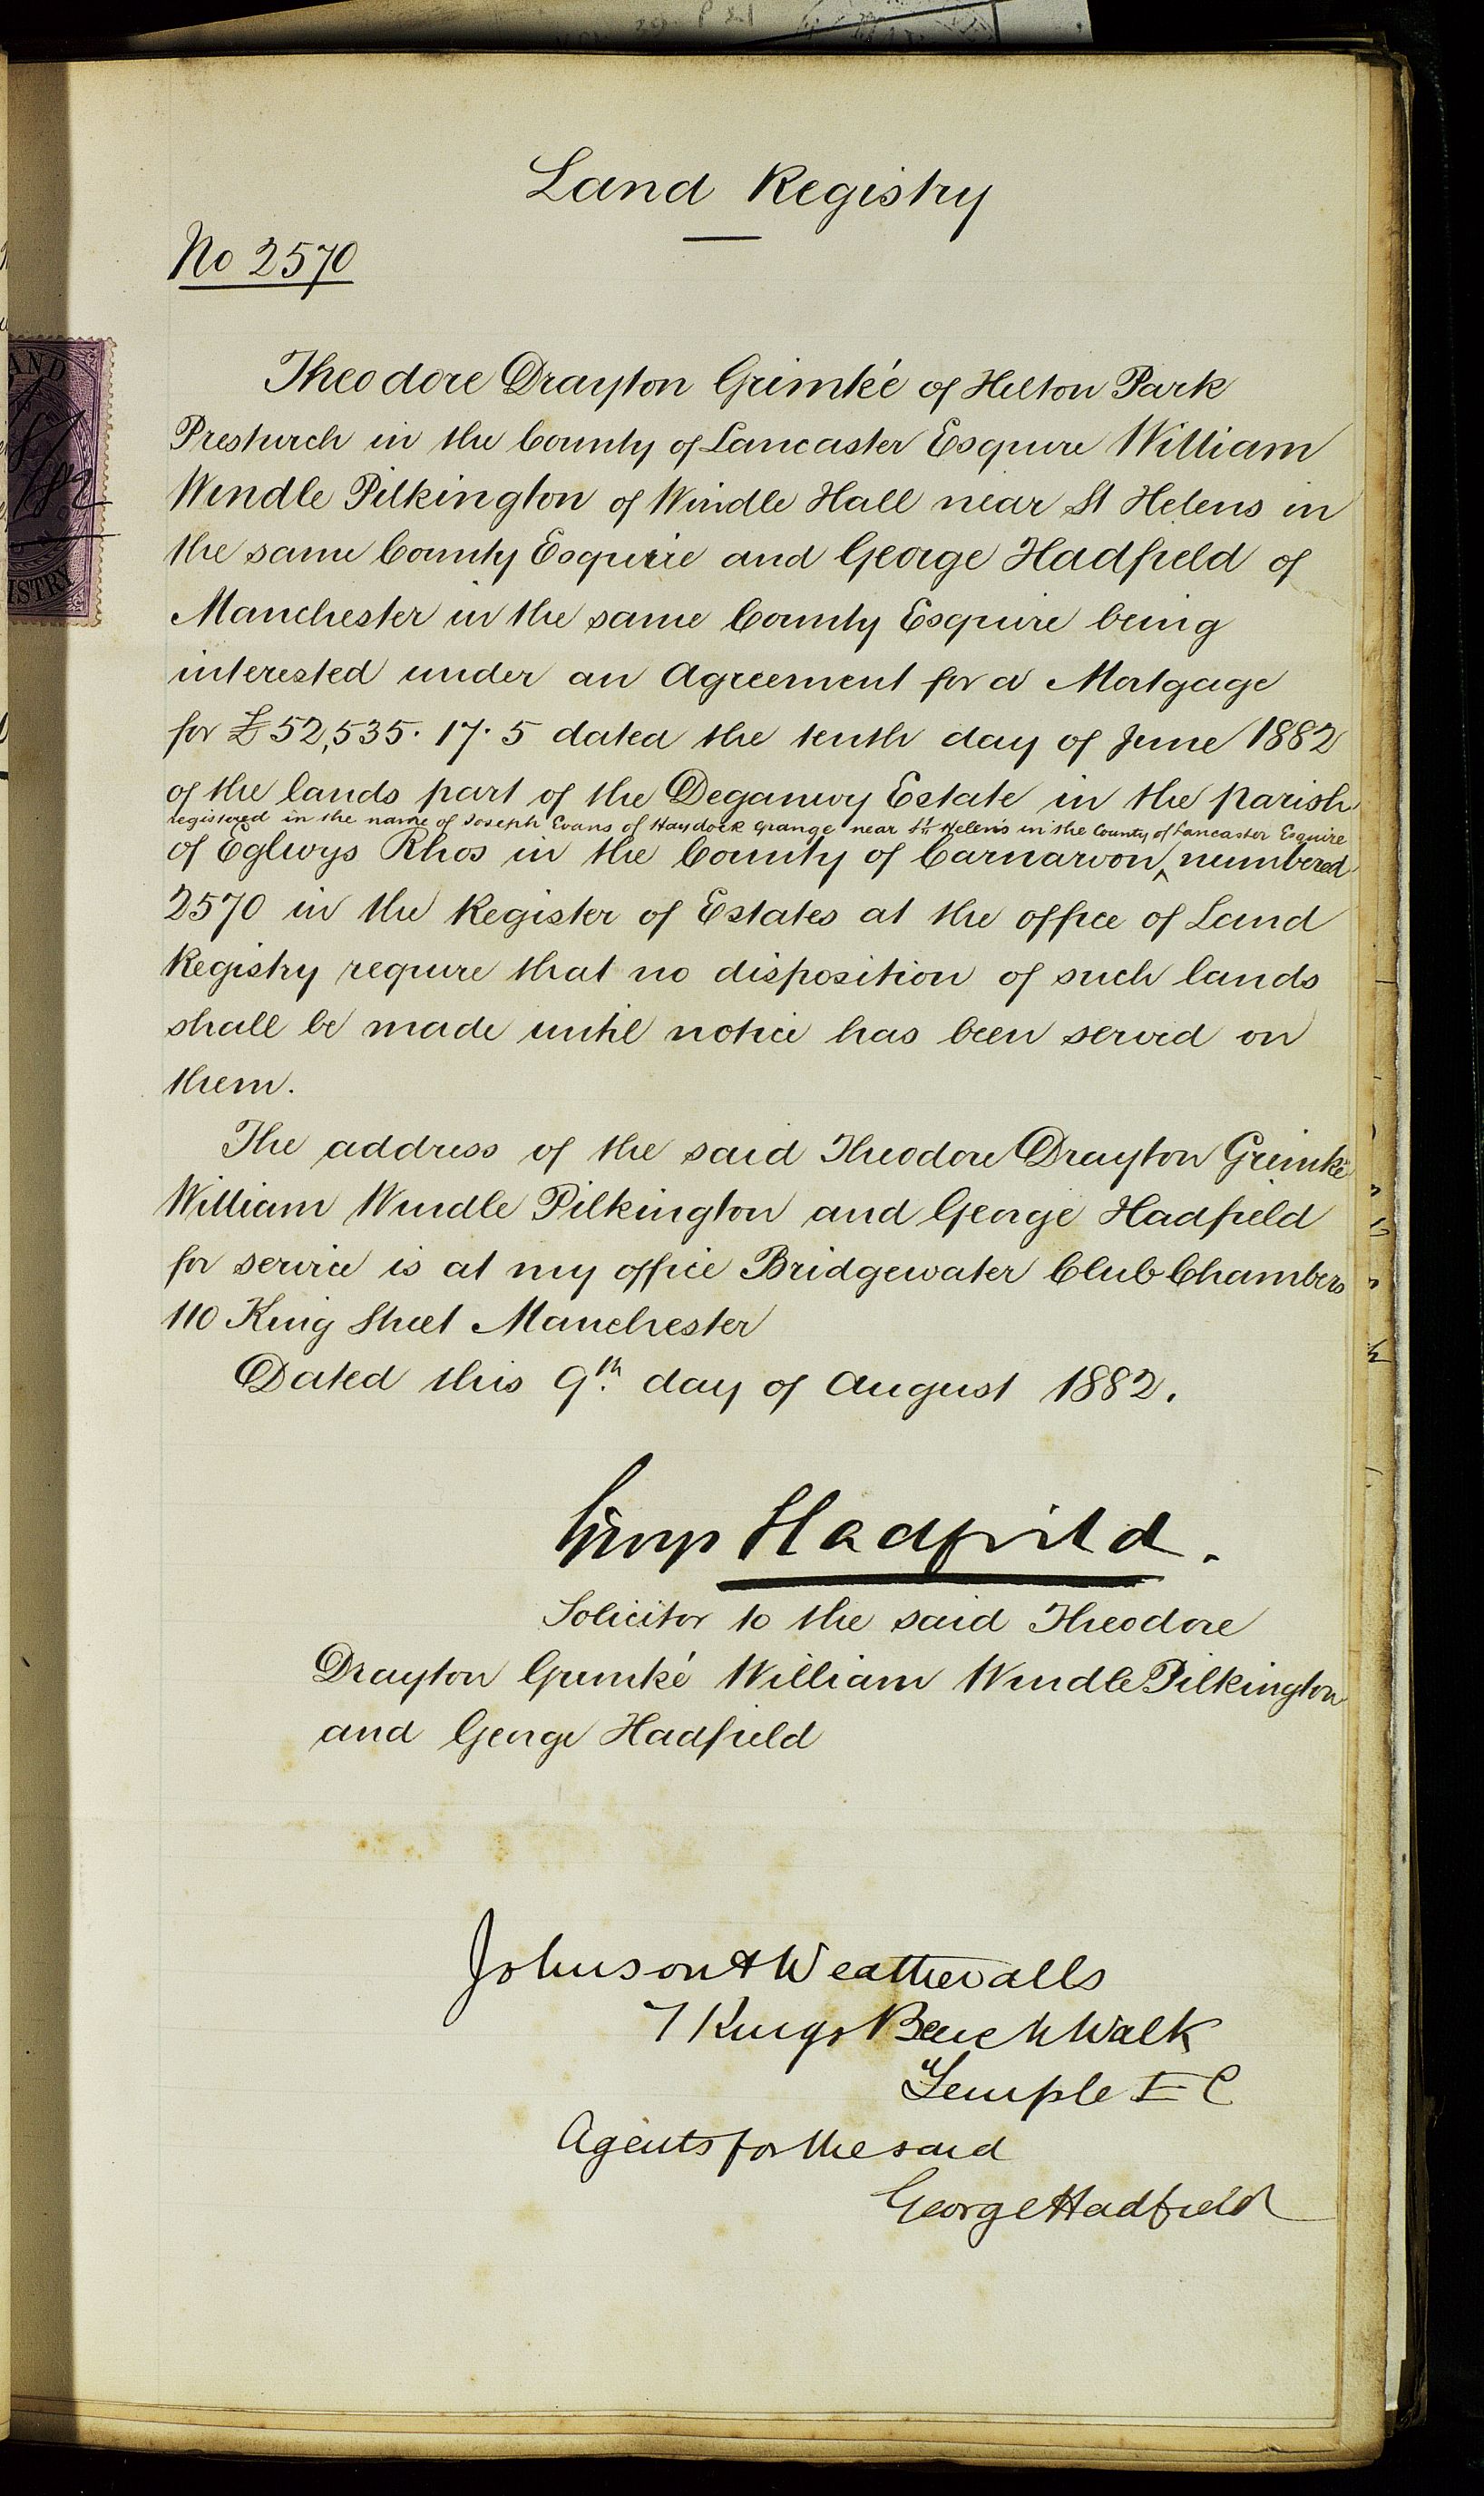 Land Registry
No 2570
Theodore Drayton Grimké of Hilton Park
Prestwich in the County of Lancaster Esquire William
Windle Pilkington of Windle Hall near St Helens in
the same County Esquire and George Hadfield of
Manchester in the same County Esquire being
interested under an Agreement for a Mortgage
for £52,535. 17. 5 dated the tenth day of June 1882
of the lands part of the Deganwy Estate in the parish
registered in the name of Joseph Evans of Haydock Grange near St Helens in the County of Lancaster Esquire
of Eglwys Rhos in the County of Carnarvon ^ numbered
2570 in the Register of Estates at the office of Land
Registry require that no disposition of such lands
shall be made until notice has been served on
them.
The address of the said Theodore Drayton Grimké
William Windle Pilkington and George Hadfield
for service is at my office Bridgewater Club Chambers
110 King Street Manchester
Dated this 9th day of August 1882.
George Hadfield.
Solicitor to the said Theodore
Drayton Grimké William Windle Pilkington
and George Hadfield
Johnson & Weatheralls
7 Kings Bench Walk
Temple E C
Agents for the said
George Hadfield